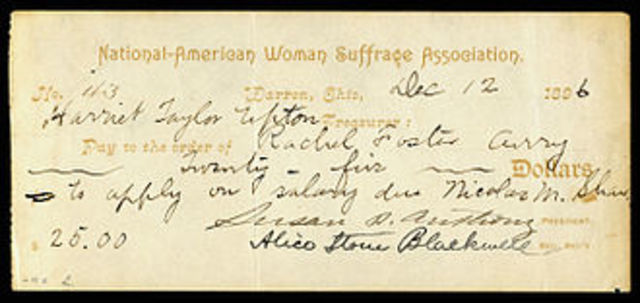 National-American Woman Suffrage Association.
No. 113 Warren, Ohio, Dec 12 1896
Harriet Taylor Upton Treasurer:
Pay to the order of Rachel Foster Avery
Twenty-five Dollars
to apply on salary due Nicolas M. Shaw
Susan B. Anthony President.
$ 25.00 Alice Stone Blackwell